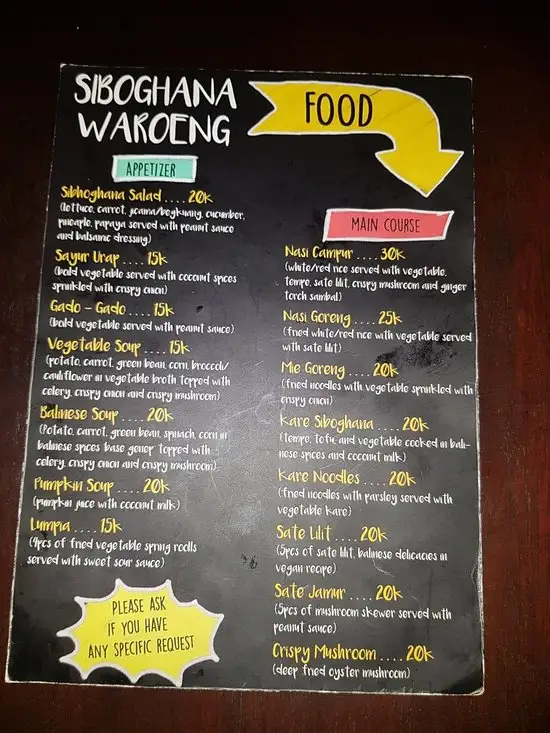 SIBOGHANA
WAROENG
FOOD
APPETIZER
Sibhoghana Salad .... 20k
(lettuce, carrot, jicama/begkuang, cucumber,
pineaple, papaya served with peanut sauce
and balsamic dressing)
Sayur Urap .... 15k
(bold vegetable served with coconut spices
sprinkled with crispy onion)
Gado - Gado .... 15k
(bold vegetable served with peanut sauce)
Vegetable Soup .... 15k
(potato, carrot, green bean, corn, broccoli/
cauliflower in vegetable broth topped with
celery, crispy onion and crispy mushroom)
Balinese Soup .... 20k
(Potato, carrot, green bean, spinach, corn in
balinese spices base genep topped with
celery, crispy onion and crispy mushroom)
Pumpkin Soup .... 20k
(pumpkin juice with coconut milk)
Lumpia .... 15k
(4pcs of fried vegetable spring roolls
served with sweet sour sauce)
PLEASE ASK
IF YOU HAVE
ANY SPECIFIC REQUEST
MAIN COURSE
Nasi Campur .... 30k
(white/red rice served with vegetable,
tempe, sate lilit, crispy mushroom and ginger
torch sambal)
Nasi Goreng .... 25k
(fried white/red rice with vegetable served
with sate lilit)
Mie Goreng .... 20k
(fried noodles with vegetable sprinkled with
crispy onion)
Kare Siboghana .... 20k
(tempe, tofu and vegetable cooked in bali-
nese spices and coconut milk)
Kare Noodles .... 20k
(fried noodles with parsley served with
vegetable kare)
Sate Lilit .... 20k
(5pcs of sate lilit, balinese delicacies in
vegan recipe)
Sate Jamur .... 20k
(5pcs of mushroom skewer served with
peanut sauce)
Crispy Mushroom .... 20k
(deep fried oyster mushroom)